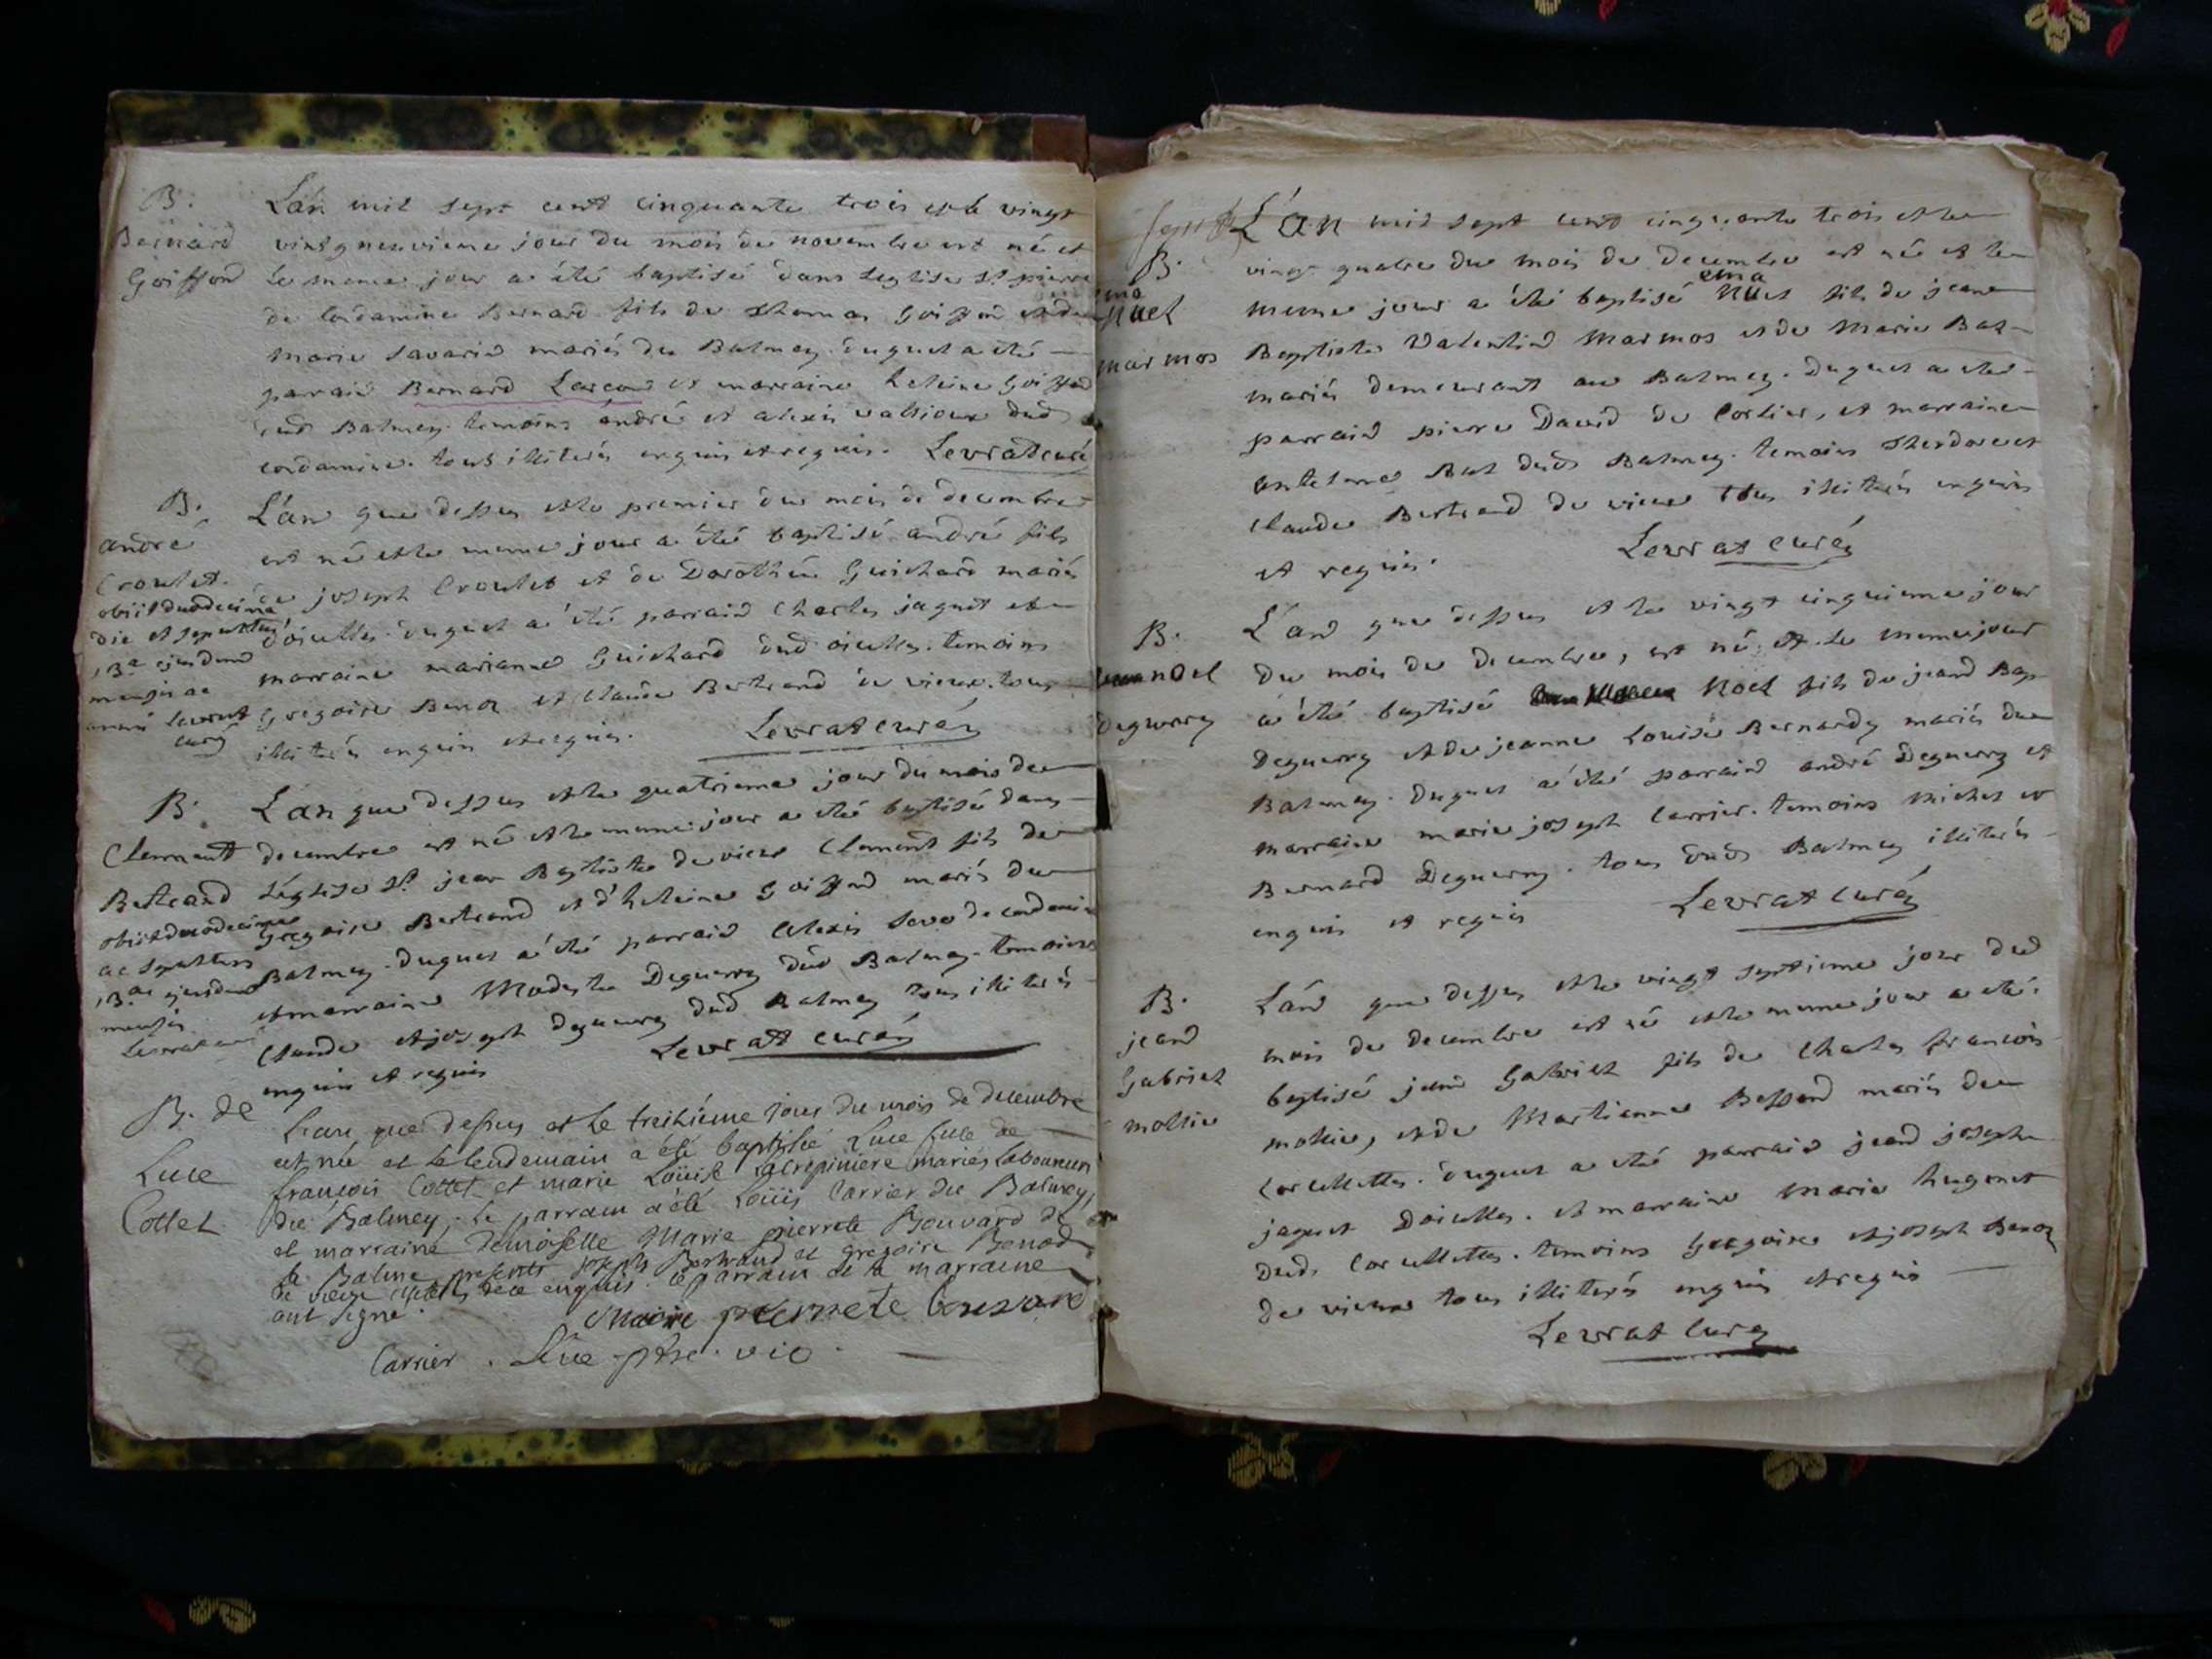 B.
Bernard
Goiffond
L'an mil sept cent cinquante trois et le vingt
vint gneuvieme jour du mois de novembre est né et
le meme jour a été baptisé dans leglise st pierre
de Condamine Bernard fils de Thomas Goiffond et de
marie Savarin mariés du Balmey duquel a été
parrain Bernard et marraine heleine Goiffond
dud Balmey temoins andré et alexis vallioux dud
condamine. tous illiterés enquis et requis. Levrat curé
B.
andré
Croulet.
obiit duodecima
die et sepultus
13a ejusdem
mensis ac
anni Levrat
curé
L'an que dessus et le premier du mois de decembre
est né et le meme jour a été baptisé andré fils
de joseph Croulet et de Dorothée Guichard mariés
doiselles duquel a été parrain Charles jaguet et
marraine marianne Guichard dud oiselles. temoins
Gregoire Benoz et Claude Bertrand de vieux. tous
illiterés enquis et requis. Levrat curéz
B.
Clemant
Bertrand
obiit duodecima
ac sepultus
13ae ejusdem
mensis
Levrat curé
L'an que dessus et le quatrieme jour du mois de
decembre est né et le meme jour a été baptisé dans
l'église st jean Baptiste de vieux Clement fils de
Gregoire Bertrand et d'heleine Goiffond mariés du
Balmey. duquel a été parrain Alexis de condamine
et marraine Modeste Deguerry dud Balmey. temoins
Claude et joseph deguerry dud Balmey tous illiterés
enquis et requis Levrat curéz
B. de
Luce
Collet
L'an que dessus et le treiziéme jour du mois de decembre
est née et le lendemain a été baptisée Luce fille de
françois Collet et marie Loüise mariés laboureurs
du Balmey, le parrain a été Loüis Carrier du Balmey,
et marraine demoiselle Marie pierrete Bouvard de
la Balme presents joseph Bertrand et gregoire Benod
de vieux enquis. le parrain et la marraine
ont signé. Marie piernete Bouvard
Carrier. vic.
B.
emanuel
marmos
L'an mil sept cent cinquante trois et le
vingt quatre du mois de decembre est né et le
meme jour a été baptisé emanuel fils de jean
Baptiste Valentin Marmos et de Marie Baz
mariés demeurant au Balmey. duquel a été
parrain pierre David de Corlier, et marraine
antelme dud Balmey. temoins Theodore et
claude Bertrand de vieux tous illiterés enquis
et requis. Levrat curéz
B.
noel
Deguerry
L'an que dessus et le vingt cinquieme jour
du mois de decembre, est né et le meme jour
a été baptisé Noel fils de jean Bap
Deguerry et de jeanne Louise Bernardy mariés du
Balmey. duquel a été parrain andré Deguerry et
marraine marie joseph Carrier. temoins michel et
Bernard Deguerry. tous dud Balmey illiterés
enquis et requis Levrat curéz
B.
jean
Gabriel
mollie
L'an que dessus et le vingt septieme jour dud
mois de decembre est né et le meme jour a été
baptisé jean Gabriel fils de Charles françois
mollie, et de Martianne Bessond mariés de
corcellettes. duquel a été parrain jean joseph
jaguet doiselles. et marraine marie huguet
dud. corcellettes. temoins Gregoire et joseph Benoz
de vieux tous illiterés enquis et requis
Levrat curéz